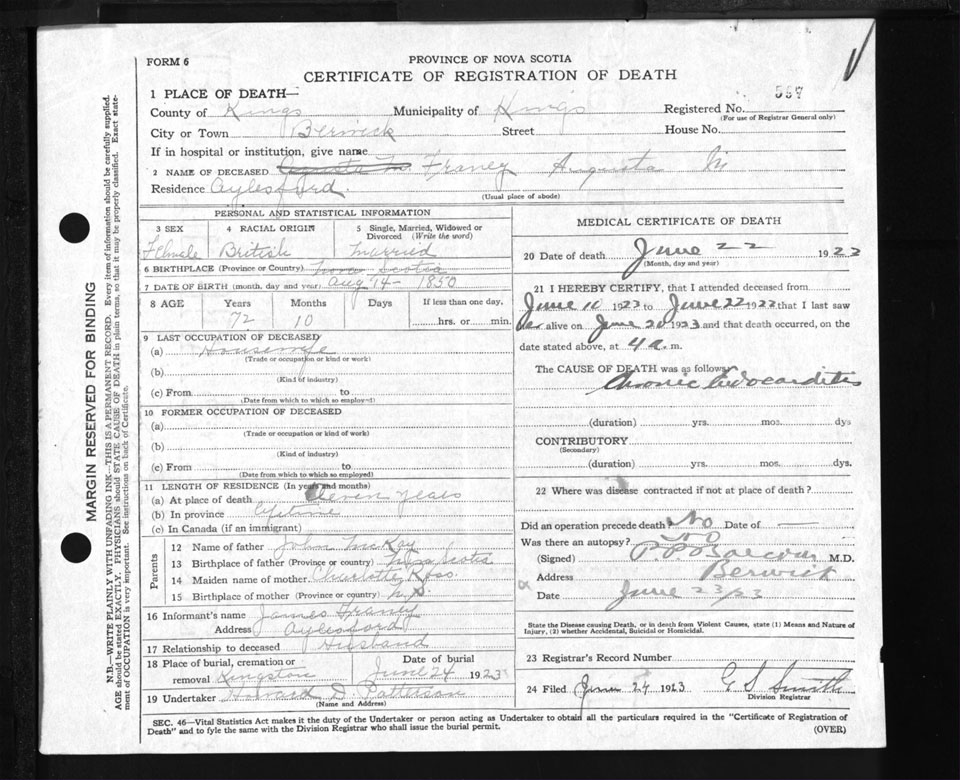 FORM 6
PROVINCE OF NOVA SCOTIA
CERTIFICATE OF REGISTRATION OF DEATH
1 PLACE OF DEATH—
County of Kings Municipality of Kings Registered No. 597
(For use of Registrar General only)
City or Town Berwick Street House No.
If in hospital or institution, give name
2 NAME OF DECEASED Augusta M Franey Augusta M
Residence Aylesford
(Usual place of abode)
PERSONAL AND STATISTICAL INFORMATION
3 SEX 4 RACIAL ORIGIN 5 Single, Married, Widowed or Divorced (Write the word)
Female British Married
6 BIRTHPLACE (Province or Country) Nova Scotia
7 DATE OF BIRTH (month, day and year) Aug 14 - 1850
8 AGE Years Months Days If less than one day,
72 10 hrs. or min.
9 LAST OCCUPATION OF DECEASED
(a) Housewife
(Trade or occupation or kind of work)
(b)
(Kind of industry)
(c) From to
(Date from which to which so employed)
10 FORMER OCCUPATION OF DECEASED
(a)
(Trade or occupation or kind of work)
(b)
(Kind of industry)
(c) From to
(Date from which to which so employed)
11 LENGTH OF RESIDENCE (In years and months)
(a) At place of death Eleven years
(b) In province Lifetime
(c) In Canada (if an immigrant)
Parents
12 Name of father John McKay
13 Birthplace of father (Province or country) Nova Scotia
14 Maiden name of mother Charlotte Ross
15 Birthplace of mother (Province or country) N.S.
16 Informant's name James Franey
Address Aylesford
17 Relationship to deceased Husband
18 Place of burial, cremation or removal Kingston Date of burial June 24 1923
19 Undertaker Howard D Patterson
(Name and Address)
MEDICAL CERTIFICATE OF DEATH
20 Date of death June 22 1923
(Month, day and year)
21 I HEREBY CERTIFY, that I attended deceased from
June 10 1923 to June 22 1923 that I last saw
her alive on June 20 1923 and that death occurred, on the
date stated above, at 4 a. m.
The CAUSE OF DEATH was as follows:
Chronic Endocarditis
(duration) yrs. mos. dys
CONTRIBUTORY
(Secondary)
(duration) yrs. mos. dys.
22 Where was disease contracted if not at place of death?
Did an operation precede death No Date of —
Was there an autopsy? No
(Signed) M.D.
Address Berwick
Date June 23/23
State the Disease causing Death, or in death from Violent Causes, state (1) Means and Nature of
Injury, (2) whether Accidental, Suicidal or Homicidal.
23 Registrar's Record Number
24 Filed June 24 1923 G S Smith
Division Registrar
SEC. 46—Vital Statistics Act makes it the duty of the Undertaker or person acting as Undertaker to obtain all the particulars required in the "Certificate of Registration of
Death" and to fyle the same with the Division Registrar who shall issue the burial permit. (OVER)
MARGIN RESERVED FOR BINDING
N.B.—WRITE PLAINLY WITH UNFADING INK—THIS IS A PERMANENT RECORD. Every item of information should be carefully supplied.
AGE should be stated EXACTLY. PHYSICIANS should STATE CAUSE OF DEATH in plain terms, so that it may be properly classified. Exact state-
ment of OCCUPATION is very important. See instructions on back of Certificate.